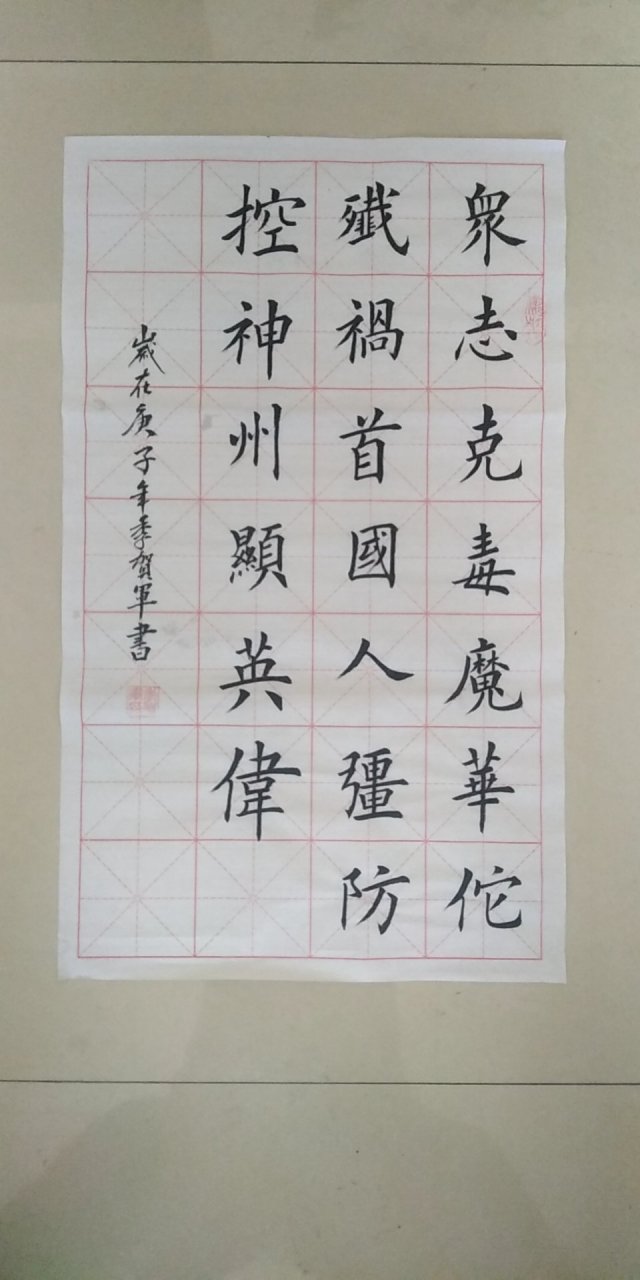 眾志克毒魔華佗
殲禍首國人彊防
控神州顯英偉
歲在庚子年季賀軍書